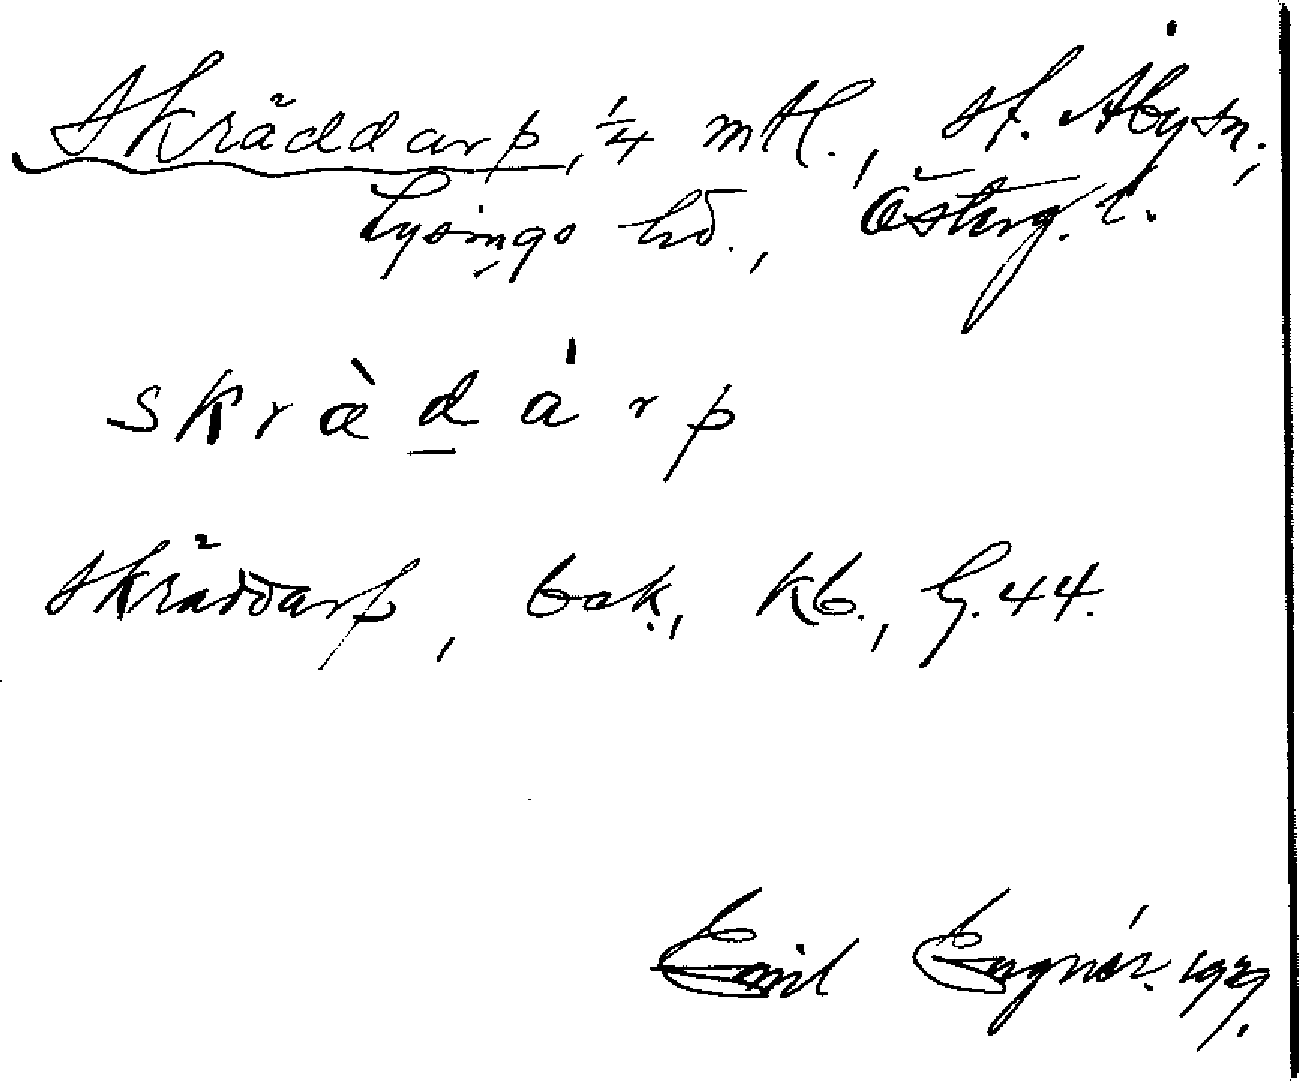 Skräddarp, 1/4 mtl., St. Åbysn.,
Lysings hd., Österg. l.
skrædarp
Skräddarp, bok., Kb., G. 44.
Emil Engnér. 1929.